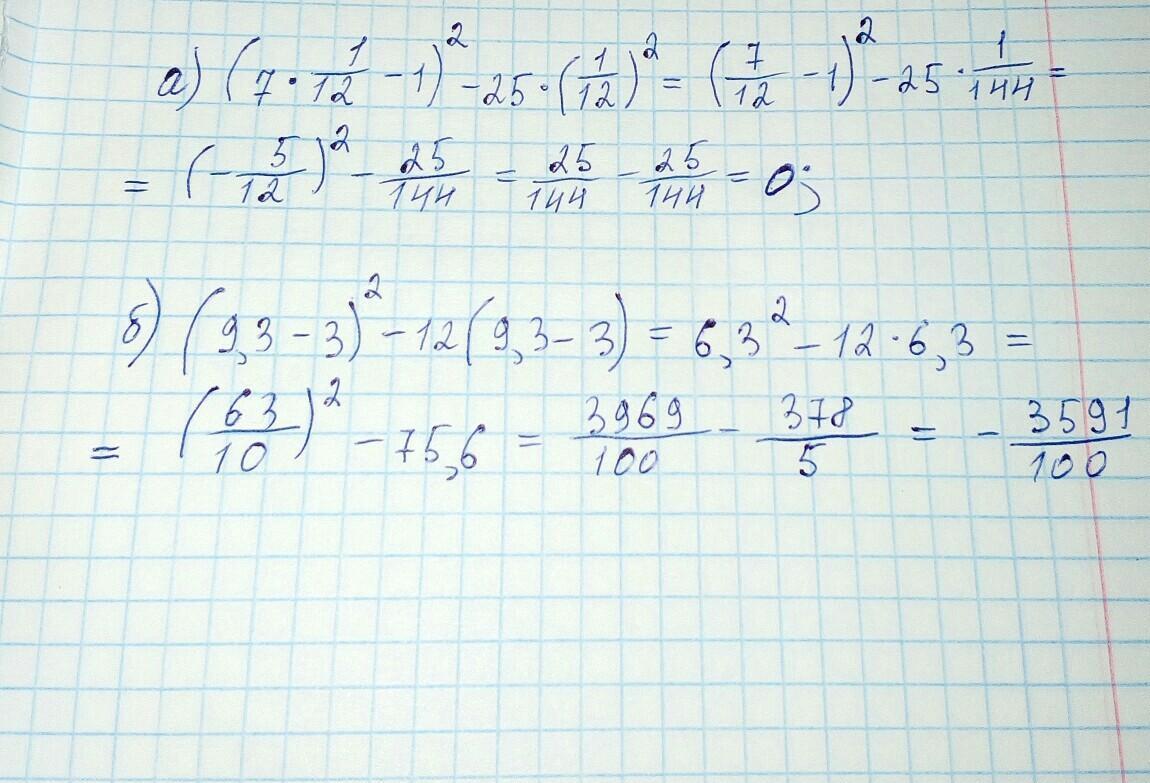 а) (7 · 1/12 - 1)² - 25 · (1/12)² = (7/12 - 1)² - 25 · 1/144 =
= (- 5/12)² - 25/144 = 25/144 - 25/144 = 0;
б) (9,3 - 3)² - 12 (9,3 - 3) = 6,3² - 12 · 6,3 =
= (63/10)² - 75,6 = 3969/100 - 378/5 = - 3591/100